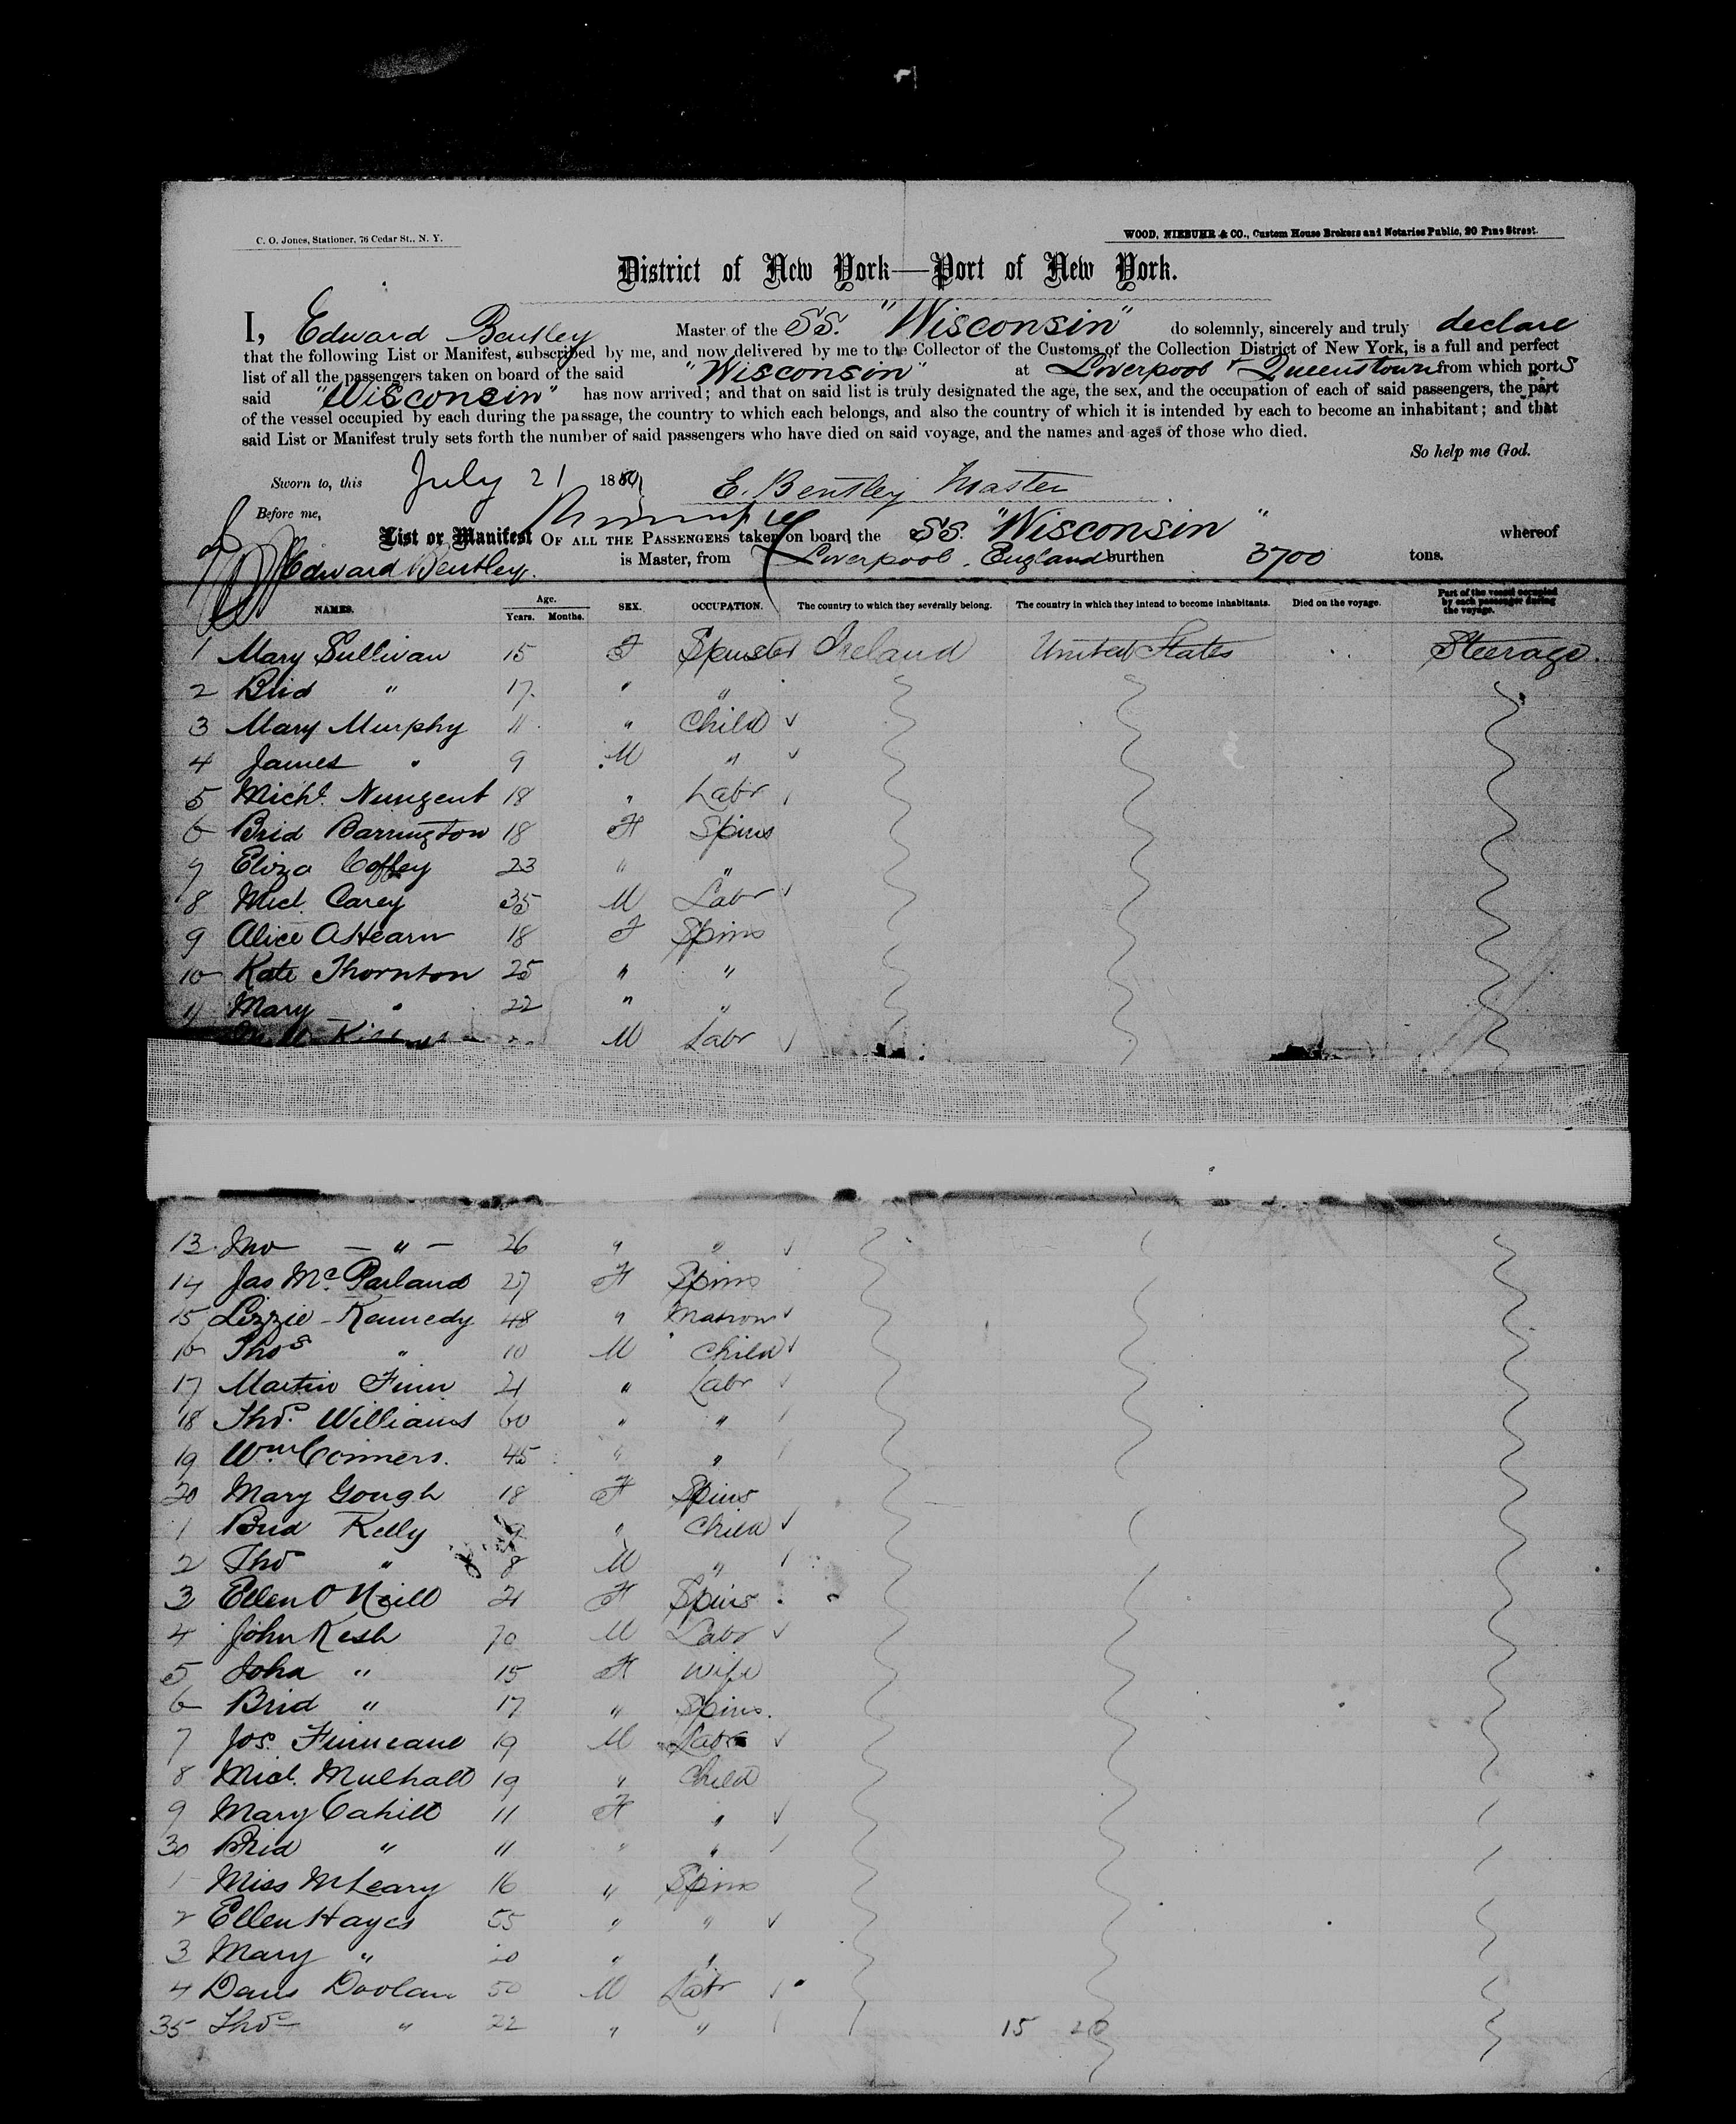 C. O. Jones, Stationer, 76 Cedar St., N. Y.
WOOD, NIEBUHR & CO., Custom House Brokers and Notaries Public, 20 Pine Street.
District of New York—Port of New York.
I, Edward Bentley Master of the SS. "Wisconsin" do solemnly, sincerely and truly declare
that the following List or Manifest, subscribed by me, and now delivered by me to the Collector of the Customs of the Collection District of New York, is a full and perfect
list of all the passengers taken on board of the said "Wisconsin" at Liverpool & Queenstown from which ports
said "Wisconsin" has now arrived; and that on said list is truly designated the age, the sex, and the occupation of each of said passengers, the part
of the vessel occupied by each during the passage, the country to which each belongs, and also the country of which it is intended by each to become an inhabitant; and that
said List or Manifest truly sets forth the number of said passengers who have died on said voyage, and the names and ages of those who died.
So help me God.
Sworn to, this July 21 188 E. Bentley Master
Before me,
List or Manifest OF ALL THE PASSENGERS taken on board the SS. "Wisconsin" whereof
Edward Bentley. is Master, from Liverpool, England burthen 3700 tons.
NAMES. Age. Years. Months. SEX. OCCUPATION. The country to which they severally belong. The country in which they intend to become inhabitants. Died on the voyage. Part of the vessel occupied by each passenger during the voyage.
1 Mary Sullivan 15 F Spinster Ireland United States Steerage.
2 Brid " 17 " "
3 Mary Murphy 11 " Child
4 James " 9 M "
5 Michl. Nungent 18 " Labr
6 Brid Barrington 18 F Spins
7 Eliza Coffey 23 " "
8 Micl. Carey 35 M Labr
9 Alice AHearn 18 F Spins
10 Kate Thornton 25 " "
11 Mary " 22 " "
M Labr
13 Jno — " — 26 " "
14 Jas McParland 27 F Spins
15 Lizzie Kennedy 48 " Matron
16 Thos " 10 M Child
17 Martin Finn 21 " Labr
18 Thos. Williams 60 " "
19 Wm Conners. 45 " "
20 Mary Gough 18 F Spins
1 Brid Kelly " Child
2 Thos " 8 M "
3 Ellen O Neill 21 F Spins
4 John Kesh 70 M Labr
5 Joha " 15 F Wife
6 Brid " 17 " Spins.
7 Jos. Finucane 19 M Labr
8 Micl. Mulhall 19 " Child
9 Mary Cahill 11 F "
30 Brid " 11 " "
1 Miss McLeary 16 " Spins
2 Ellen Hayes 55 " "
3 Mary " 20 " "
4 Danis Doolan 50 M Labr
35 Thos " 22 " " 15 20